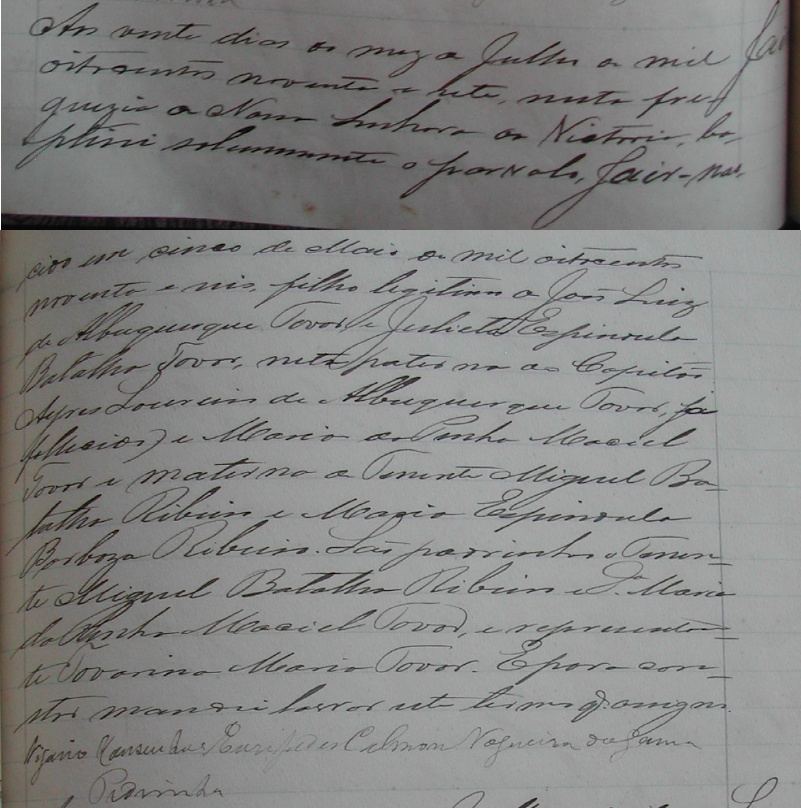 Aos vinte dias do mez de Julho de mil
oitocentos noventa e sete, nesta fre-
guezia de Nossa Senhora da Victoria, ba-
ptisei solemnemente o parvulo, Jair - nas-
cido em cinco de Maio de mil oitocentos
noventa e seis, filho legitimo de João Luiz
de Albuquerque Tovar e Julieta Espindula
Batalha Tovar, neto paterno do Capitão
Ayres Loureiro de Albuquerque Tovar, (já
fallecido) e Maria da Penha Maciel
Tovar e materno do Tenente Miguel Ba-
talha Ribeiro e Maria Espindula
Barboza Ribeiro. São padrinhos o Tenen-
te Miguel Batalha Ribeiro e D. Maria
da Penha Maciel Tovar, e representan-
te Tovarina Maria Tovar. E para cons-
star mandei lavrar este termo q. assigno.
Vigario Monsenhor Euripedes Calmon Nogueira da Gama
Pedrinha